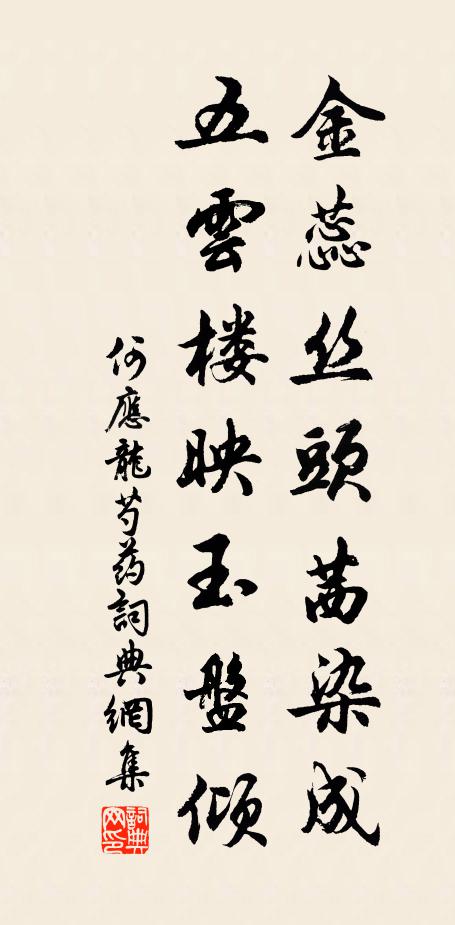 金蕊丝頭茜染成
五雲楼映玉盤傾
何應龍芍药詞典網集
詞典网印